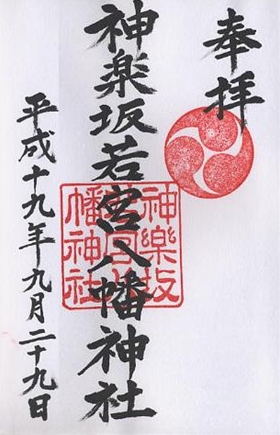 奉拝
神楽坂若宮八幡神社
平成十九年九月二十九日
神樂坂
若宮八
幡神社